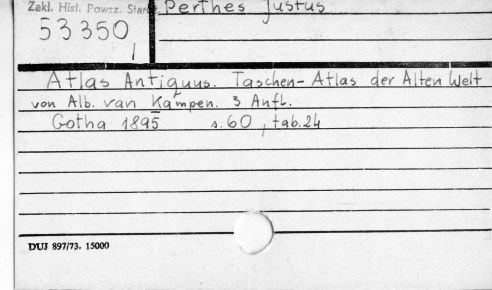 Zakł. Hist. Powsz. Star
Perthes Justus
53350
Atlas Antiquus. Taschen-Atlas der Alten Welt
von Alb. van Kampen. 3 Aufl.
Gotha 1895 s. 60, tab. 24
DUJ 897/73. 15000